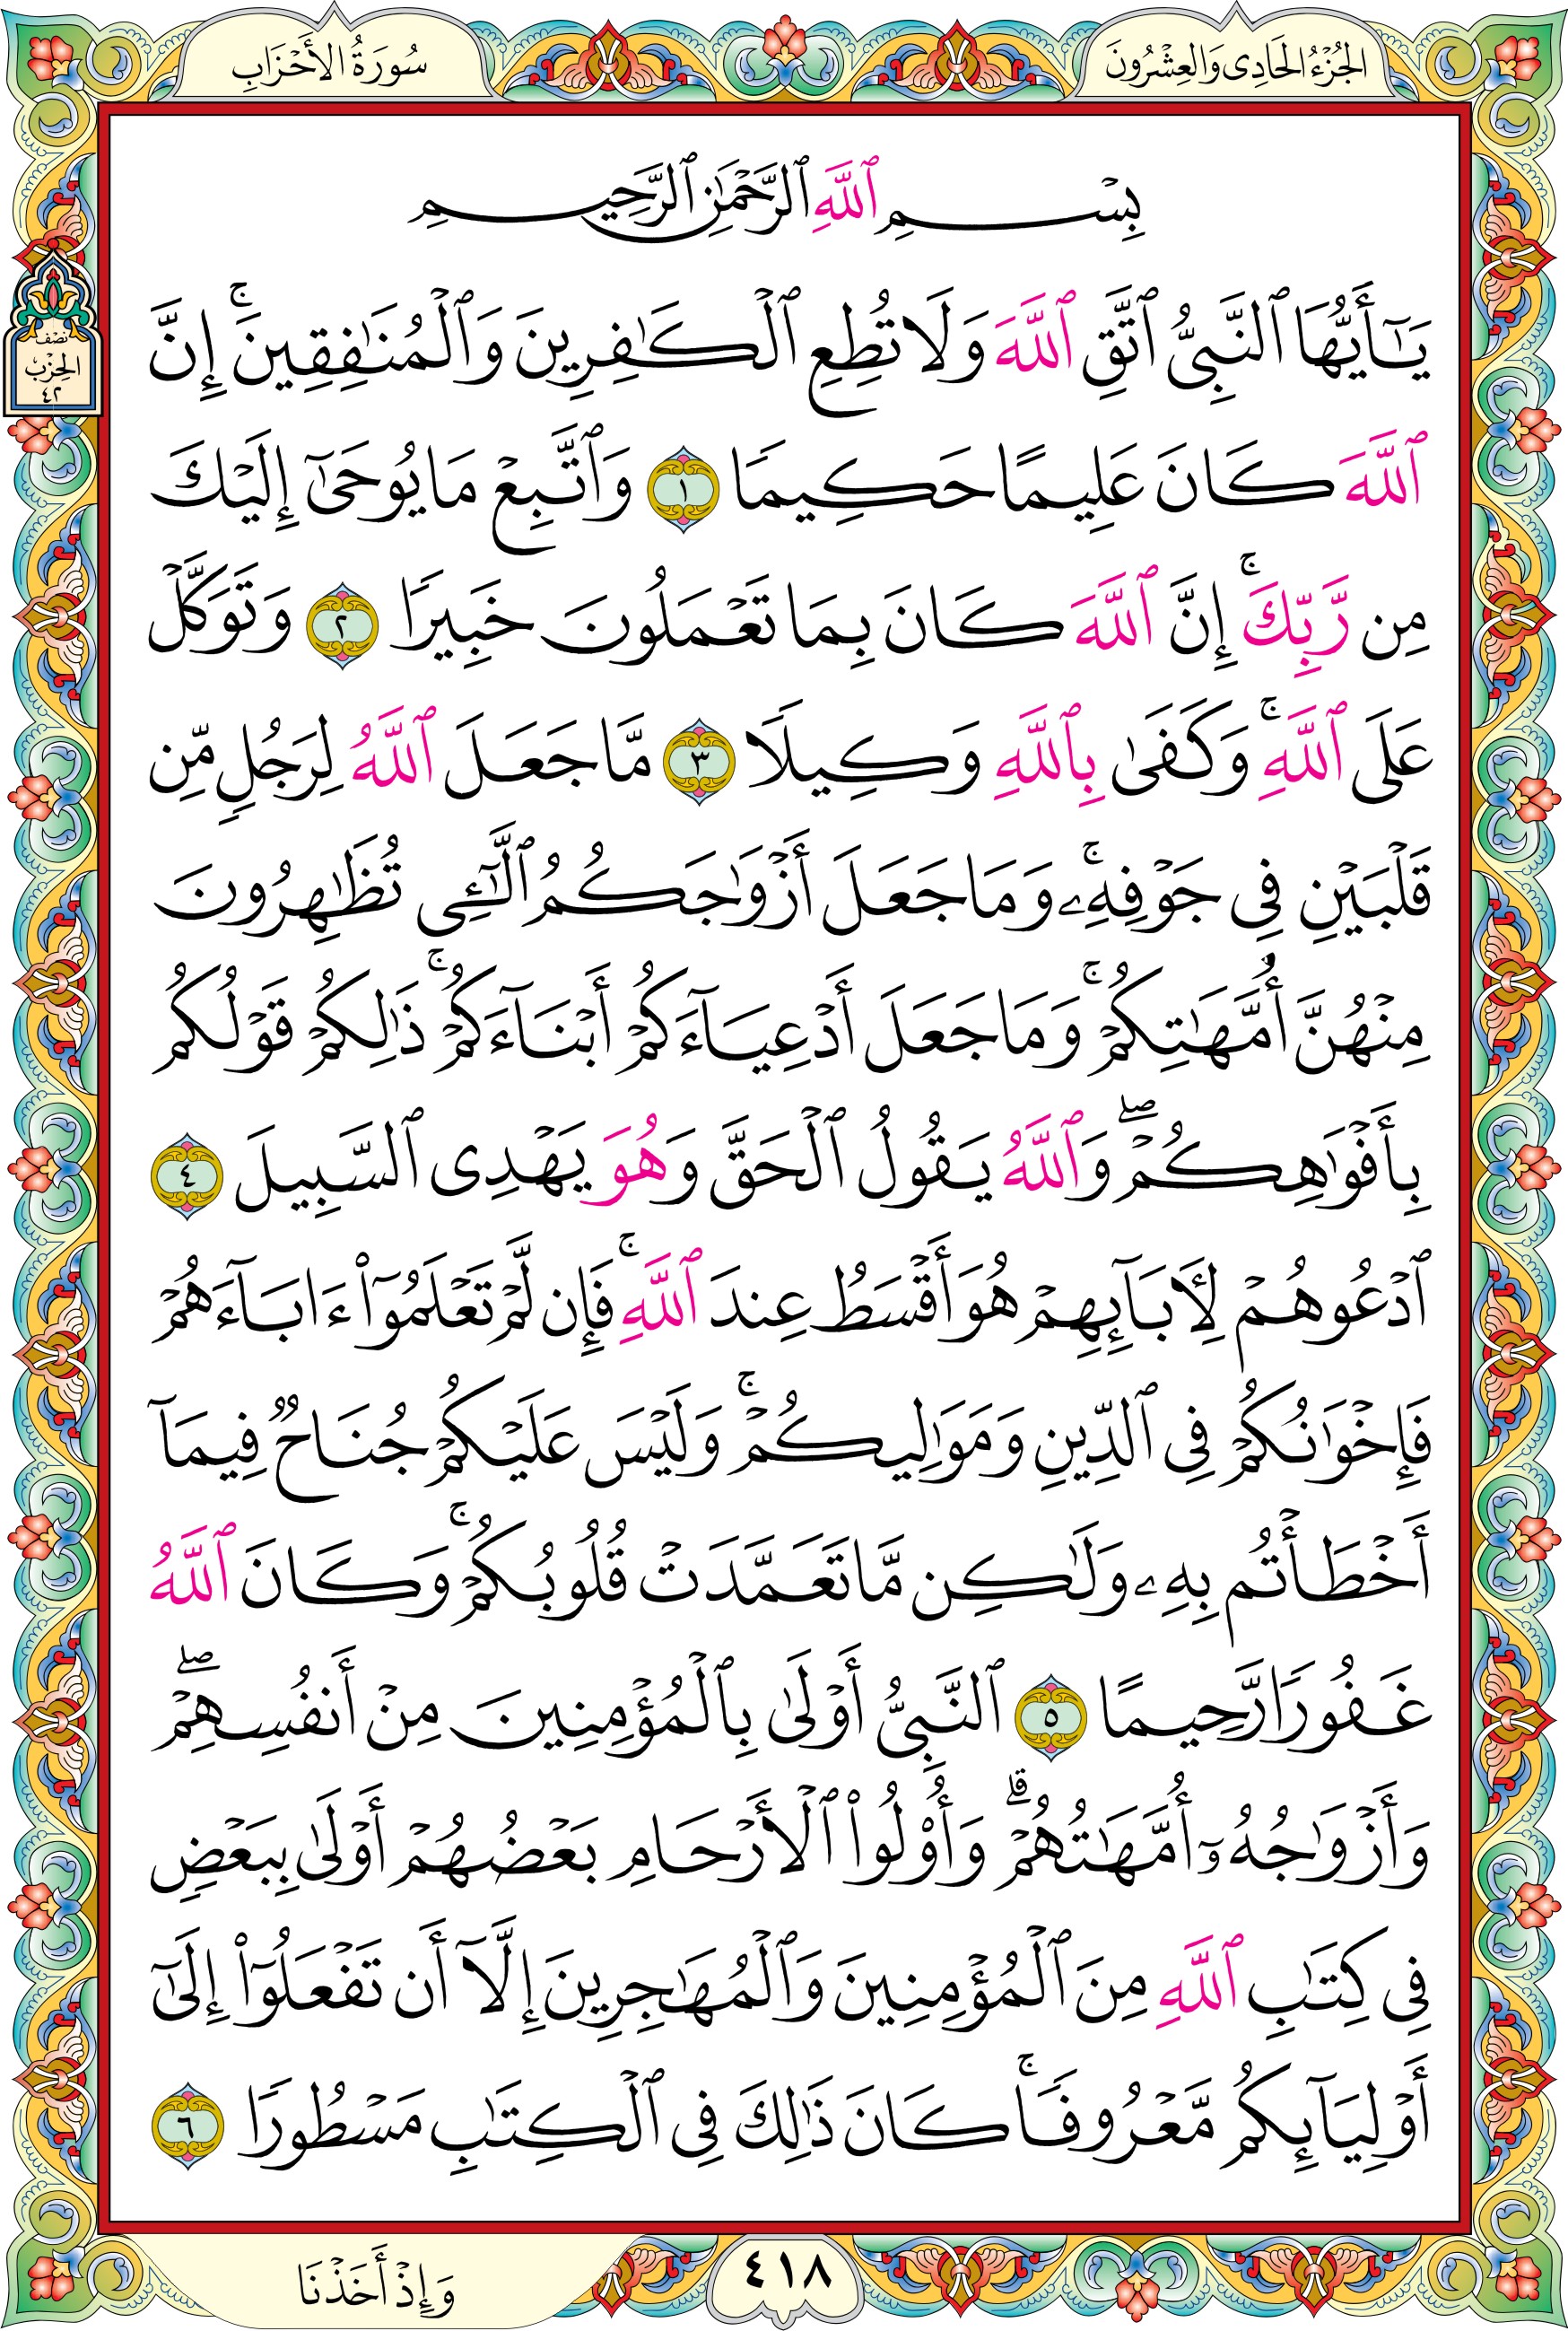 الجُزْءُ الحَادِى وَالعِشْرُونَ
سُورَةُ الأَحْزَابِ
بِسْمِ ٱللَّهِ ٱلرَّحْمَٰنِ ٱلرَّحِيمِ
يَٰٓأَيُّهَا ٱلنَّبِىُّ ٱتَّقِ ٱللَّهَ وَلَا تُطِعِ ٱلْكَٰفِرِينَ وَٱلْمُنَٰفِقِينَ ۚ إِنَّ
نصف
الحِزْب
٤٢
ٱللَّهَ كَانَ عَلِيمًا حَكِيمًا ١ وَٱتَّبِعْ مَا يُوحَىٰٓ إِلَيْكَ
مِن رَّبِّكَ ۚ إِنَّ ٱللَّهَ كَانَ بِمَا تَعْمَلُونَ خَبِيرًا ٢ وَتَوَكَّلْ
عَلَى ٱللَّهِ ۚ وَكَفَىٰ بِٱللَّهِ وَكِيلًا ٣ مَّا جَعَلَ ٱللَّهُ لِرَجُلٍ مِّن
قَلْبَيْنِ فِى جَوْفِهِۦ ۚ وَمَا جَعَلَ أَزْوَٰجَكُمُ ٱلَّٰٓـِٔى تُظَٰهِرُونَ
مِنْهُنَّ أُمَّهَٰتِكُمْ ۚ وَمَا جَعَلَ أَدْعِيَآءَكُمْ أَبْنَآءَكُمْ ۚ ذَٰلِكُمْ قَوْلُكُم
بِأَفْوَٰهِكُمْ ۖ وَٱللَّهُ يَقُولُ ٱلْحَقَّ وَهُوَ يَهْدِى ٱلسَّبِيلَ ٤
ٱدْعُوهُمْ لِـَٔابَآئِهِمْ هُوَ أَقْسَطُ عِندَ ٱللَّهِ ۚ فَإِن لَّمْ تَعْلَمُوٓا۟ ءَابَآءَهُمْ
فَإِخْوَٰنُكُمْ فِى ٱلدِّينِ وَمَوَٰلِيكُمْ ۚ وَلَيْسَ عَلَيْكُمْ جُنَاحٌ فِيمَآ
أَخْطَأْتُم بِهِۦ وَلَٰكِن مَّا تَعَمَّدَتْ قُلُوبُكُمْ ۚ وَكَانَ ٱللَّهُ
غَفُورًا رَّحِيمًا ٥ ٱلنَّبِىُّ أَوْلَىٰ بِٱلْمُؤْمِنِينَ مِنْ أَنفُسِهِمْ ۖ
وَأَزْوَٰجُهُۥٓ أُمَّهَٰتُهُمْ ۗ وَأُو۟لُوا۟ ٱلْأَرْحَامِ بَعْضُهُمْ أَوْلَىٰ بِبَعْضٍ
فِى كِتَٰبِ ٱللَّهِ مِنَ ٱلْمُؤْمِنِينَ وَٱلْمُهَٰجِرِينَ إِلَّآ أَن تَفْعَلُوٓا۟ إِلَىٰٓ
أَوْلِيَآئِكُم مَّعْرُوفًا ۚ كَانَ ذَٰلِكَ فِى ٱلْكِتَٰبِ مَسْطُورًا ٦
٤١٨
وَإِذْ أَخَذْنَا